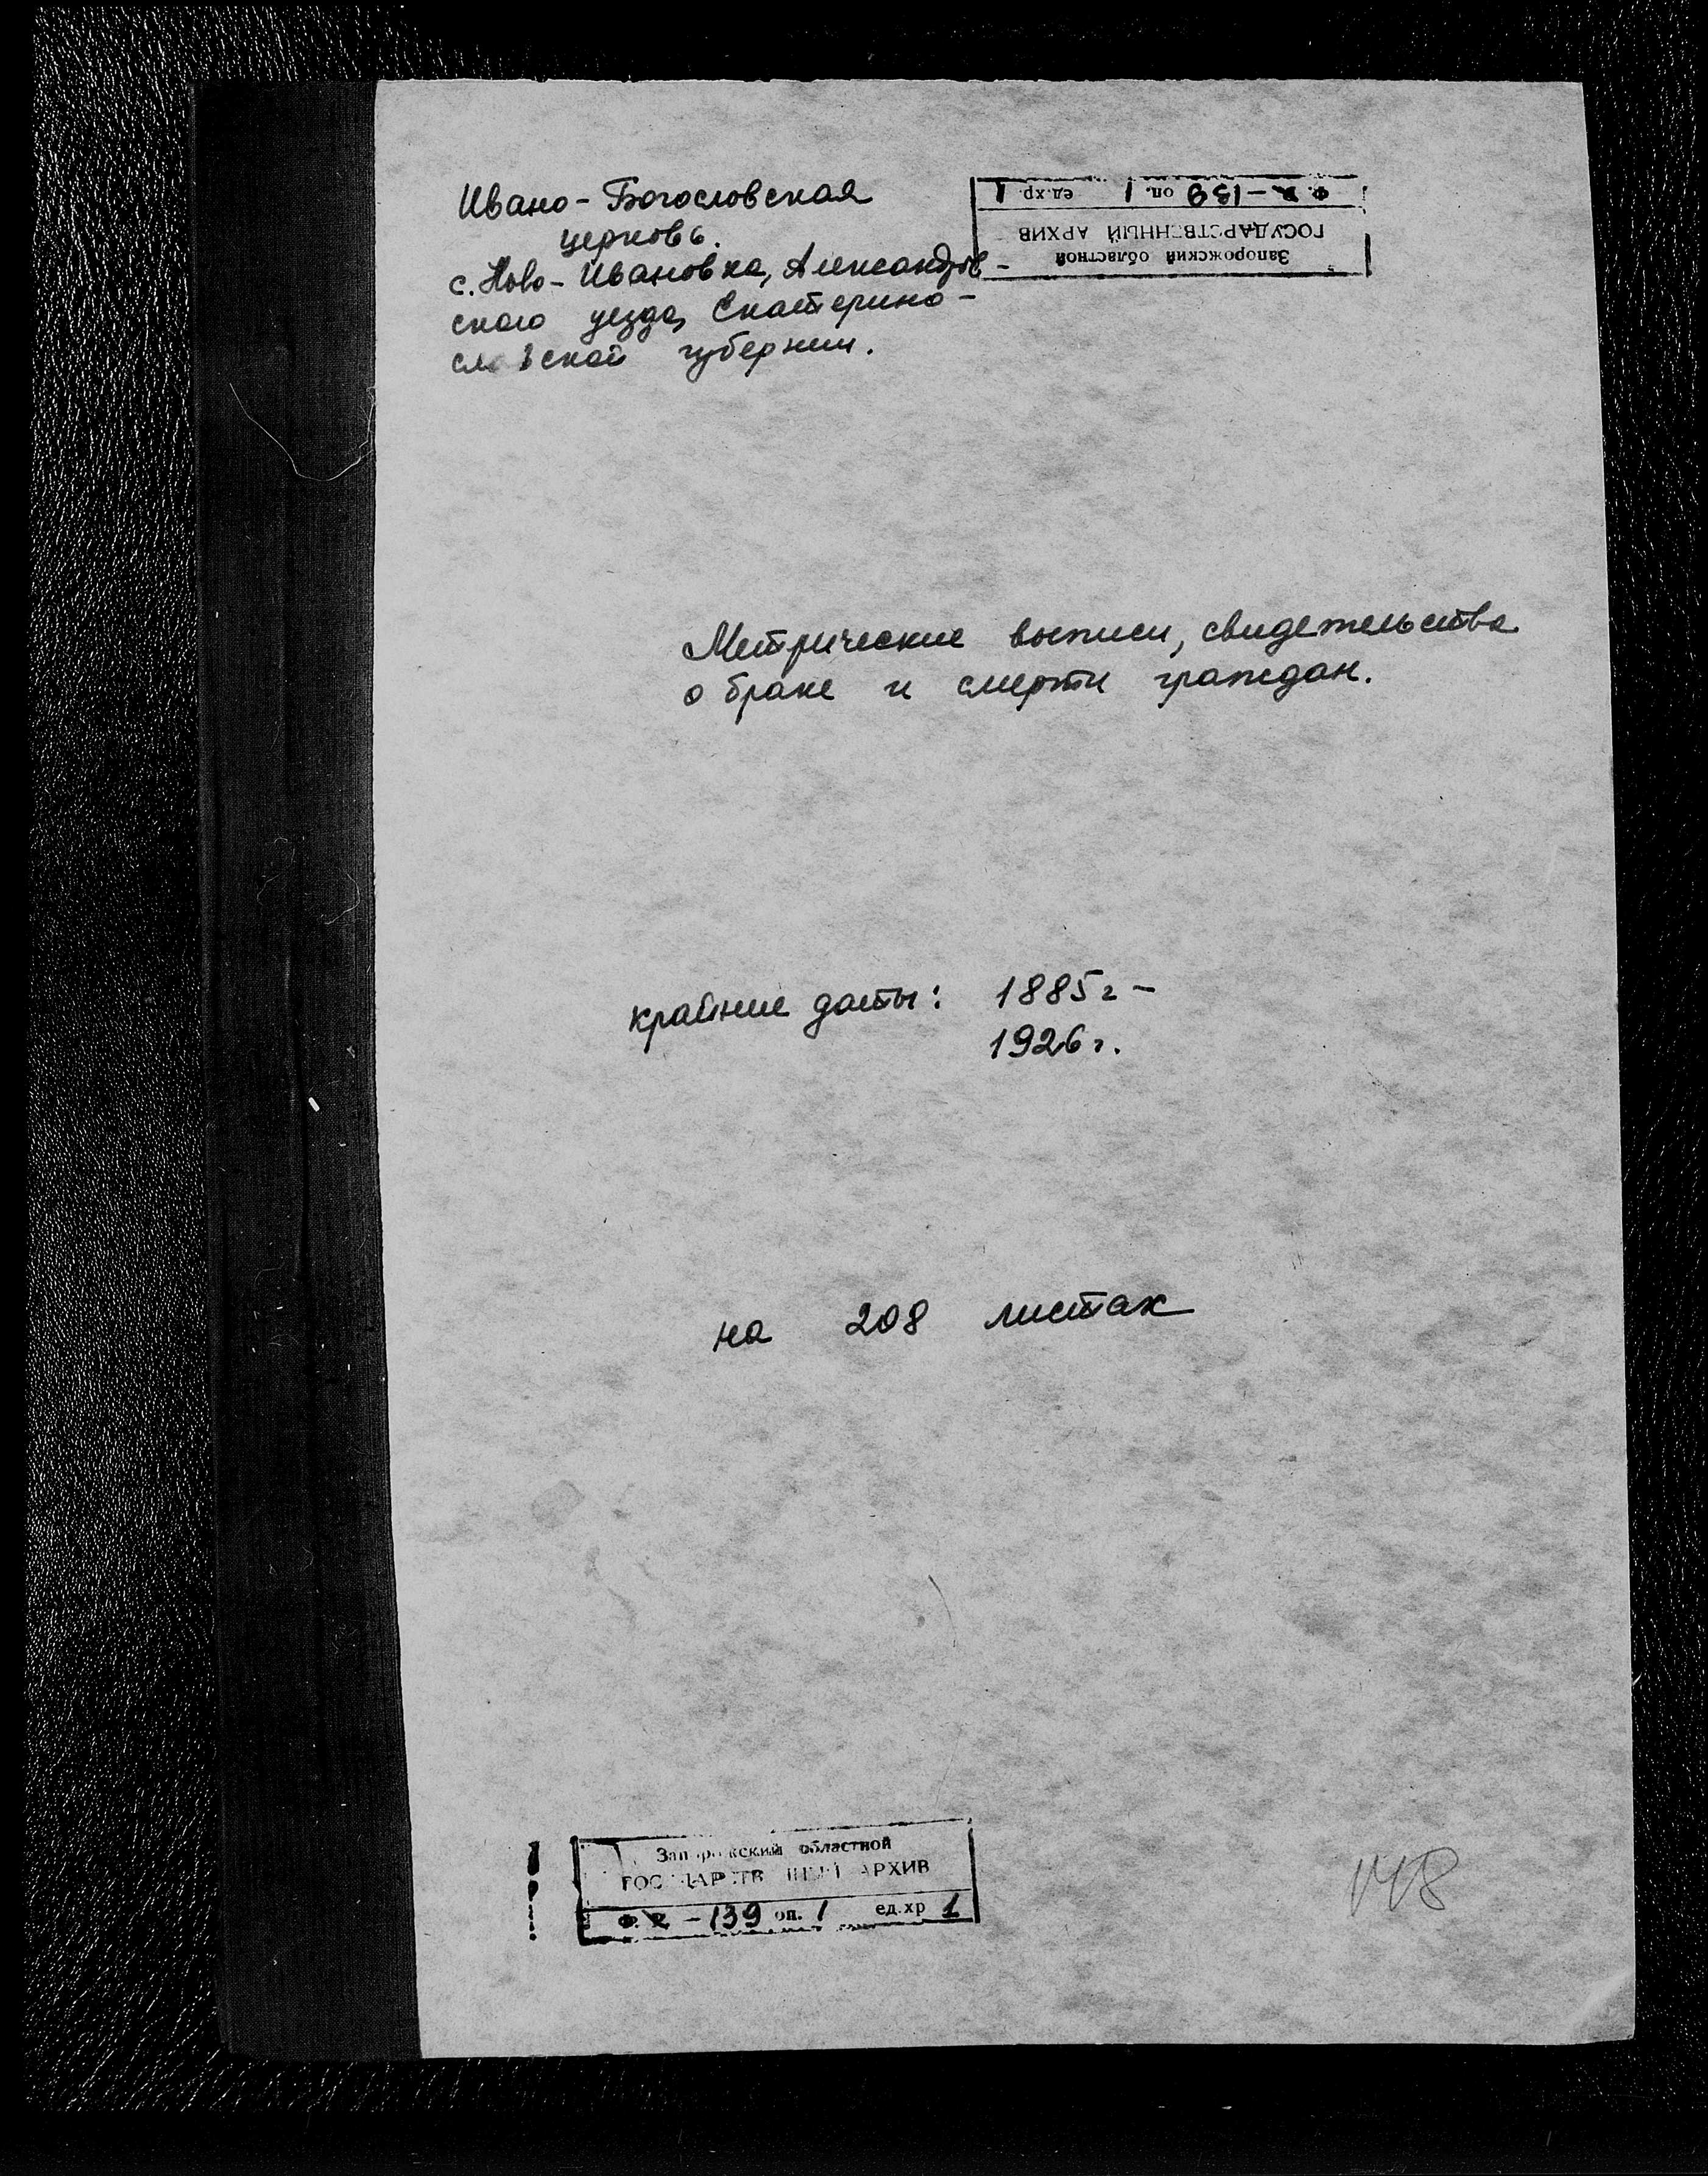 Ивано-Богословская
церковь.
с. Ново-Ивановка, Александров-
ского уезда, Екатерино-
славской губернии.
Запорожский областной
ГОСУДАРСТВЕННЫЙ АРХИВ
Ф. Р-139 оп. 1 ед.хр. 1
Метрические выписи, свидетельства
о браке и смерти граждан.
крайние даты: 1885г-
1926г.
на 208 листах
Запорожский областной
ГОСУДАРСТВЕННЫЙ АРХИВ
Ф. Р-139 оп. 1 ед.хр 1
148